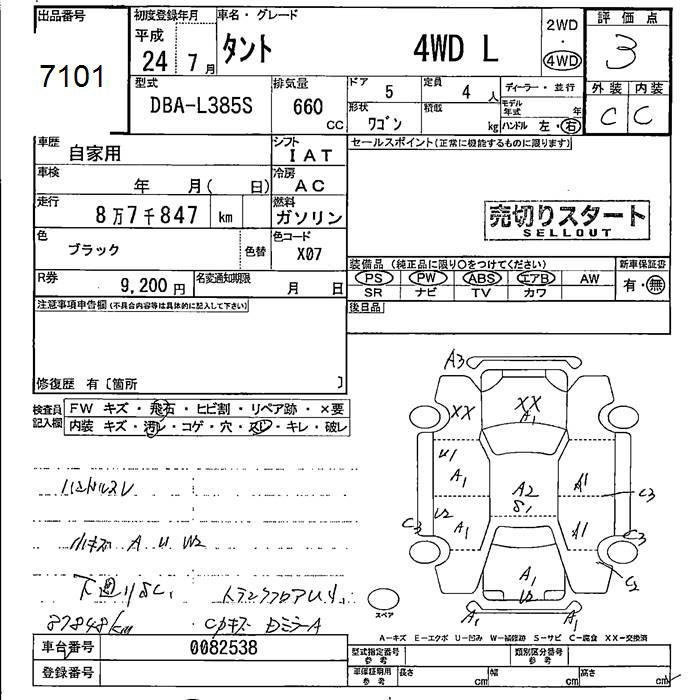 出品番号
7101
初度登録年月
平成
24年 7月
車名・グレード
タント 4WD L
2WD
・
4WD
評価点
3
型式
DBA-L385S
排気量
660
CC
ドア 5
定員 4人
ディーラー・並行
形状 ワゴン
積載 kg
モデル年式 年
ハンドル 左・右
外装 内装
C C
車歴 自家用
シフト IAT
セールスポイント(正常に機能するものに限ります)
車検 年 月( 日)
冷房 AC
走行 8万7千847 km
燃料 ガソリン
売切りスタート
SELLOUT
色 ブラック 色替
色コード X07
装備品(純正品に限り○をつけてください)
新車保証書
PS PW ABS エアB AW
有・無
SR ナビ TV カワ
R券 9,200円
名変通知期限 月 日
後日品
注意事項申告欄(不具合内容等は具体的に記入して下さい)
修復歴 有〔箇所 〕
検査員記入欄
FW キズ・飛石・ヒビ割・リペア跡・×要
内装 キズ・汚レ・コゲ・穴・スレ・キレ・破レ
ハンドルスレ
小キズ A U W2
87848km
A3
XX
XX
A1
U1
A1
A1
A2
S1
C3
U2
A1
A1
C3
C2
A1
U2
A1
A1
スペア
A-キズ E-エクボ U-凹み W-補修跡 S-サビ C-腐食 XX-交換済
車台番号 0082538
登録番号
型式指定番号 参考
類別区分番号 参考
車庫証明用 参考
長さ cm
幅 cm
高さ cm